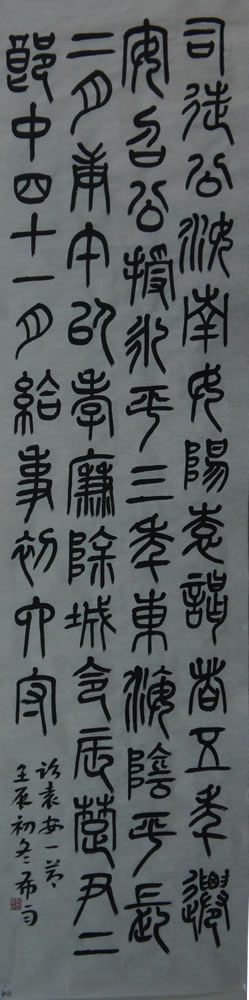 司徒公汝南女陽袁謁者五年遷
安召公授永平三年東海陰平長
二月庚午以孝廉除城令辰楚尹二
郎中四十一月給事初六守
臨袁安一节
壬辰初冬希